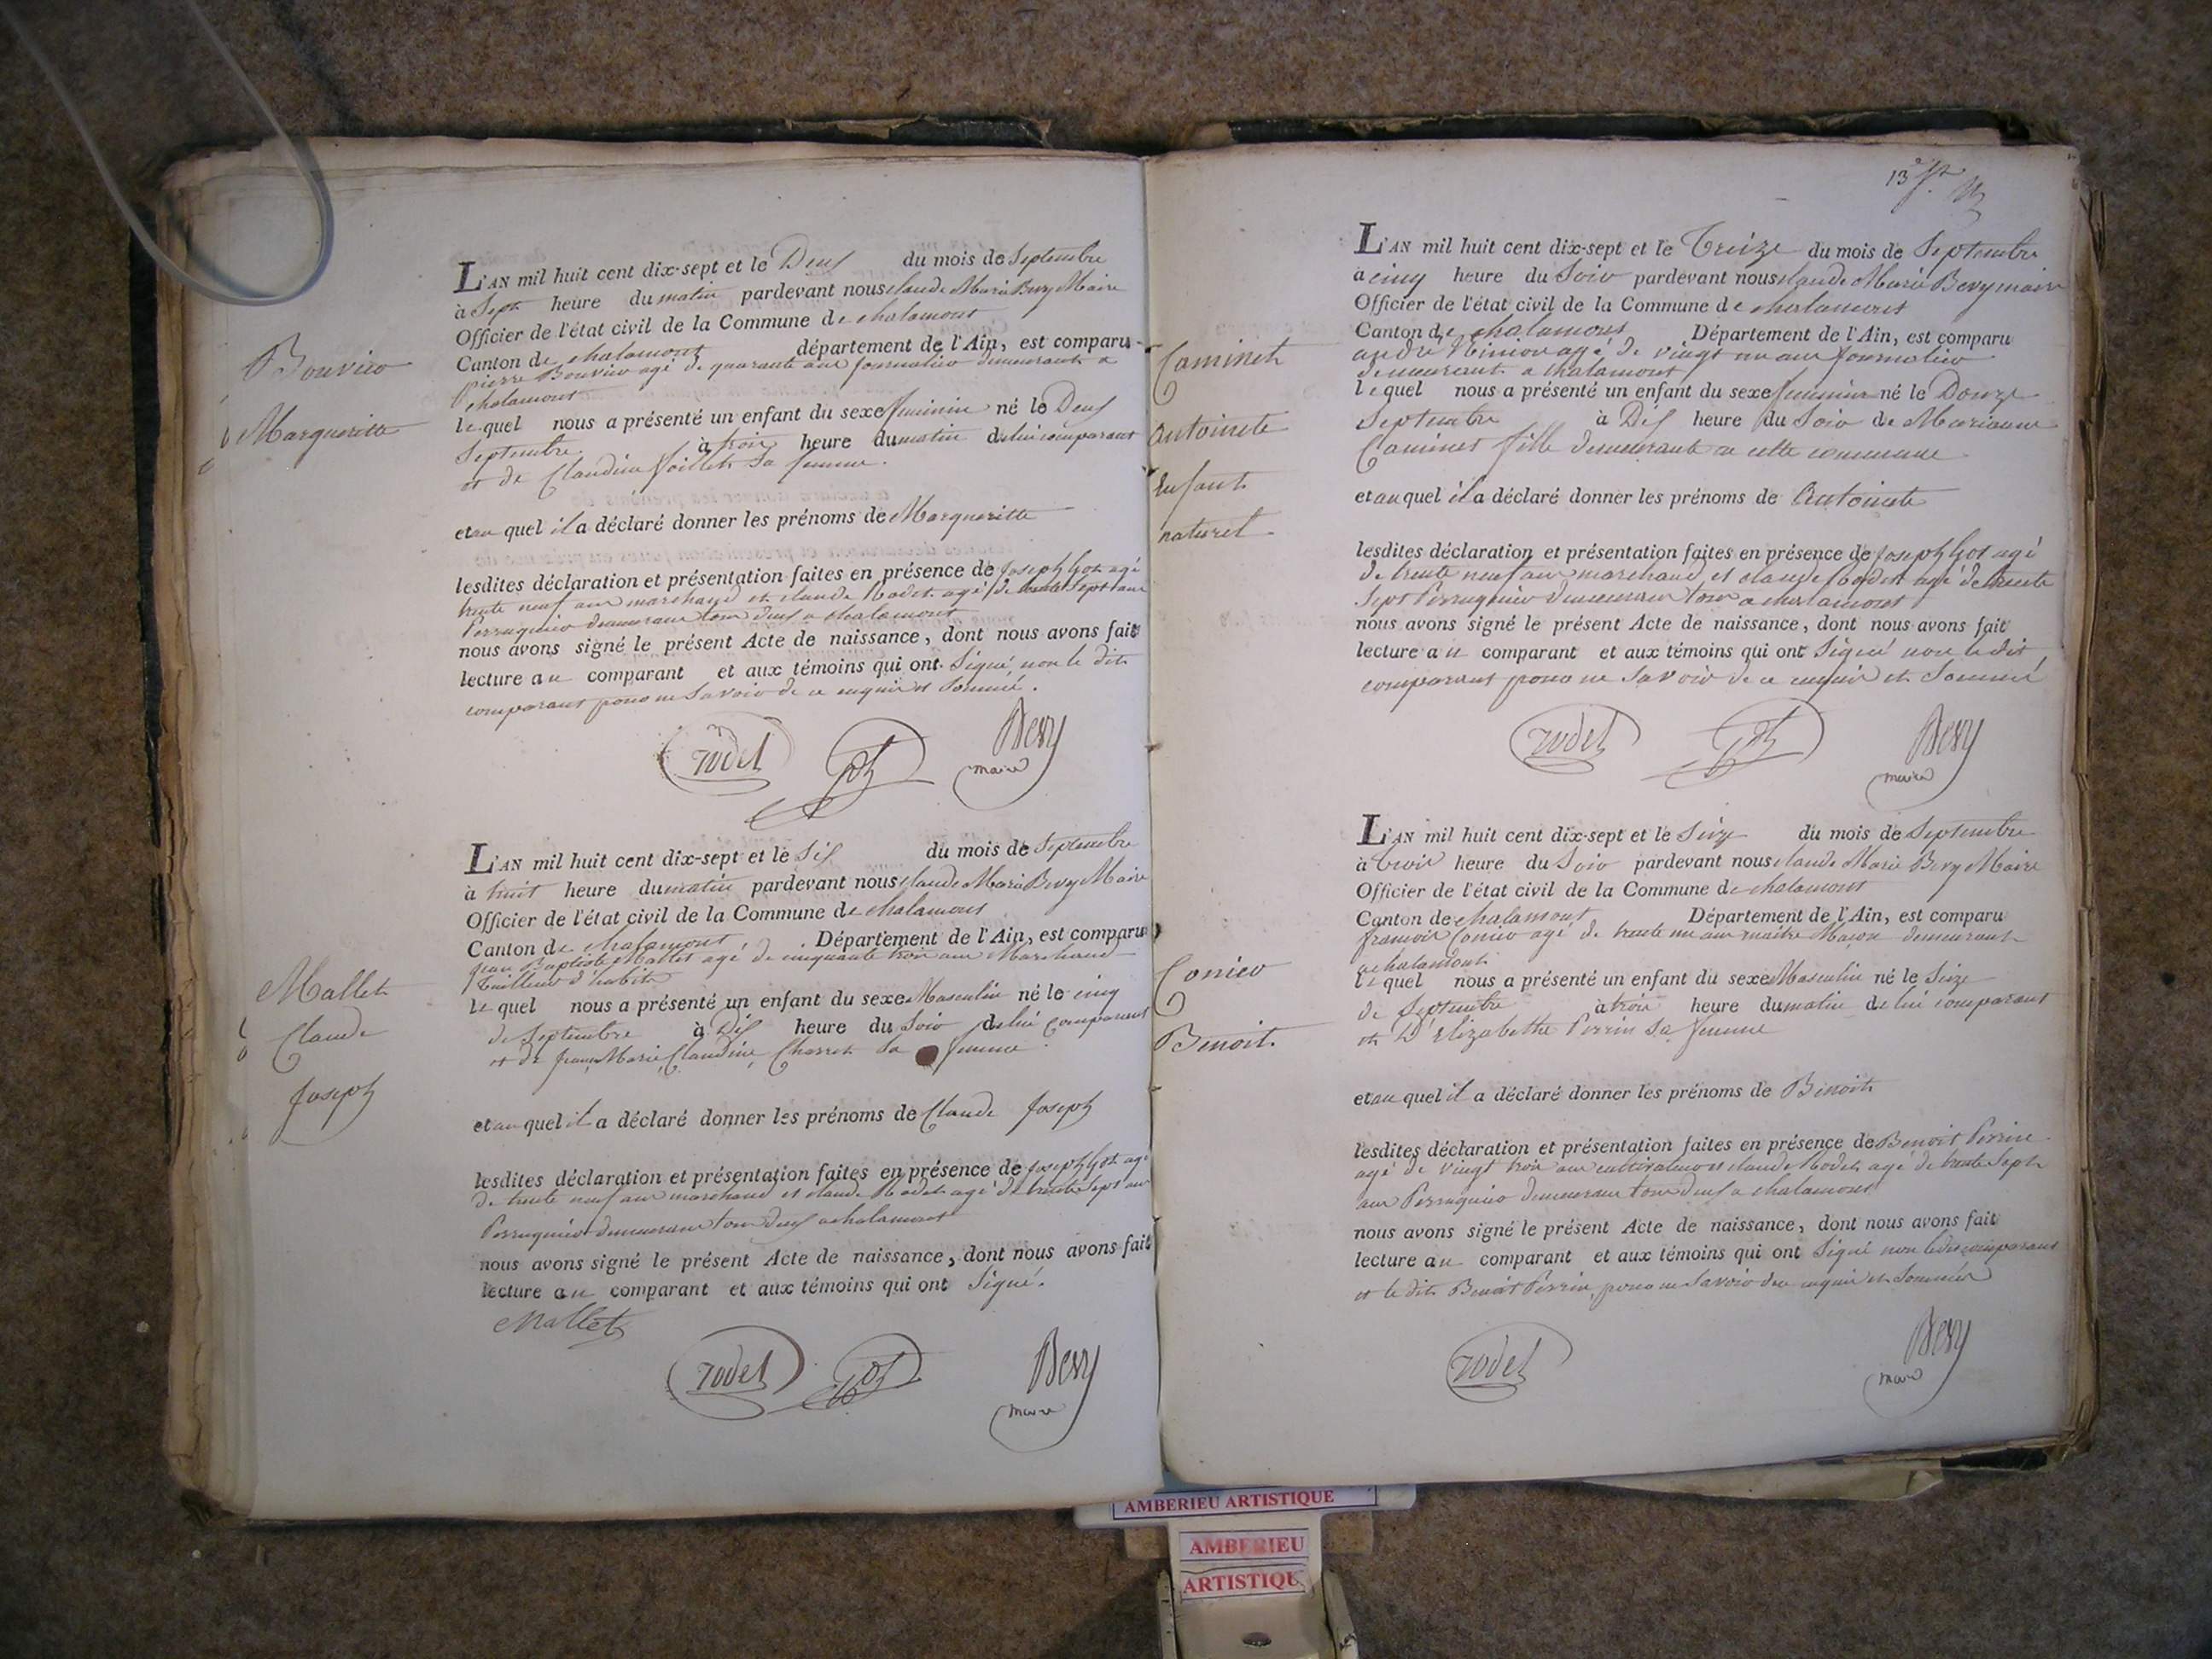 Bouvier
Margueritte
L'AN mil huit cent dix-sept et le Deux du mois de Septembre
à Sept heure du matin pardevant nous claude Marie Bevy Maire
Officier de l'état civil de la Commune de chalamont
Canton de chalamont département de l'Ain, est comparu
pierre Bouvier agé de quarante ans journalier demeurant a
chalamont
lequel nous a présenté un enfant du sexe feminin né le Deux
Septembre à trois heure du matin de lui comparant
et de Claudine sa femme.
et au quel il a déclaré donner les prénoms de Margueritte
lesdites déclaration et présentation faites en présence de Joseph Got agé
trente neuf ans marchand et claude Rodet agé de trente Sept ans
Perruquier demeurans tous deux a chalamont
nous avons signé le présent Acte de naissance, dont nous avons fait
lecture au comparant et aux témoins qui ont Signé non le dit
comparant pour ne Savoir de ce enquis et Sommé.
rodet Got Bevy
maire
Mallet
Claude
Joseph
L'AN mil huit cent dix-sept et le Six du mois de Septembre
à huit heure du matin pardevant nous claude Marie Bevy Maire
Officier de l'état civil de la Commune de chalamont
Canton de chalamont, Département de l'Ain, est comparu
jean Baptiste Mallet agé de cinquante trois ans Marchand
Tailleur d'habits
lequel nous a présenté un enfant du sexe Masculin né le cinq
de Septembre à Dix heure du Soir de lui comparant
et de Marie Claudine Charret Sa femme
et au quel il a déclaré donner les prénoms de Claude Joseph
lesdites déclaration et présentation faites en présence de Joseph Got agé
de trente neuf ans marchand et claude Rodet agé de trente Sept ans
Perruquier demeurans tous deux a chalamont
nous avons signé le présent Acte de naissance, dont nous avons fait
lecture au comparant et aux témoins qui ont Signé.
Mallet
rodet Got Bevy
maire
13
Caminet
Antoinete
Enfant
naturel
L'AN mil huit cent dix-sept et le Treize du mois de Septembre
à cinq heure du Soir pardevant nous claude Marie Bevy maire
Officier de l'état civil de la Commune de chalamont
Canton de chalamont Département de l'Ain, est comparu
andré agé de vingt un ans journalier
demeurant a chalamont
lequel nous a présenté un enfant du sexe feminin né le Douze
Septembre à Dix heure du Soir de Marianne
Caminet fille demeurante a cette commune
et au quel il a déclaré donner les prénoms de Antoinete
lesdites déclaration et présentation faites en présence de Joseph Got agé
de trente neuf ans marchand et claude Rodet agé de trente
Sept Perruquier demeurans tous a chalamont
nous avons signé le présent Acte de naissance, dont nous avons fait
lecture au comparant et aux témoins qui ont Signé non le dit
comparant pour ne Savoir de ce enquis et Sommé
rodet Got Bevy
maire
Conier
Benoit.
L'AN mil huit cent dix-sept et le Seize du mois de Septembre
à trois heure du Soir pardevant nous claude Marie Bevy Maire
Officier de l'état civil de la Commune de chalamont
Canton de chalamont Département de l'Ain, est comparu
françois Conier agé de trente un ans maitre Maçon demeurant
a chalamont
lequel nous a présenté un enfant du sexe Masculin né le Seize
de Septembre à trois heure du matin de lui comparant
et D'Elizabethe Perrin Sa femme
et au quel il a déclaré donner les prénoms de Benoit
lesdites déclaration et présentation faites en présence de Benoit Perrin
agé de vingt trois ans cultivateur et claude Rodet agé de trente Sept
ans Perruquier demeurans tous deux a chalamont
nous avons signé le présent Acte de naissance, dont nous avons fait
lecture au comparant et aux témoins qui ont Signé non ledit comparant
et le dit Benoit Perrin pour ne Savoir de ce enquis et Sommés
rodet Bevy
maire
AMBERIEU ARTISTIQUE
AMBERIEU
ARTISTIQU